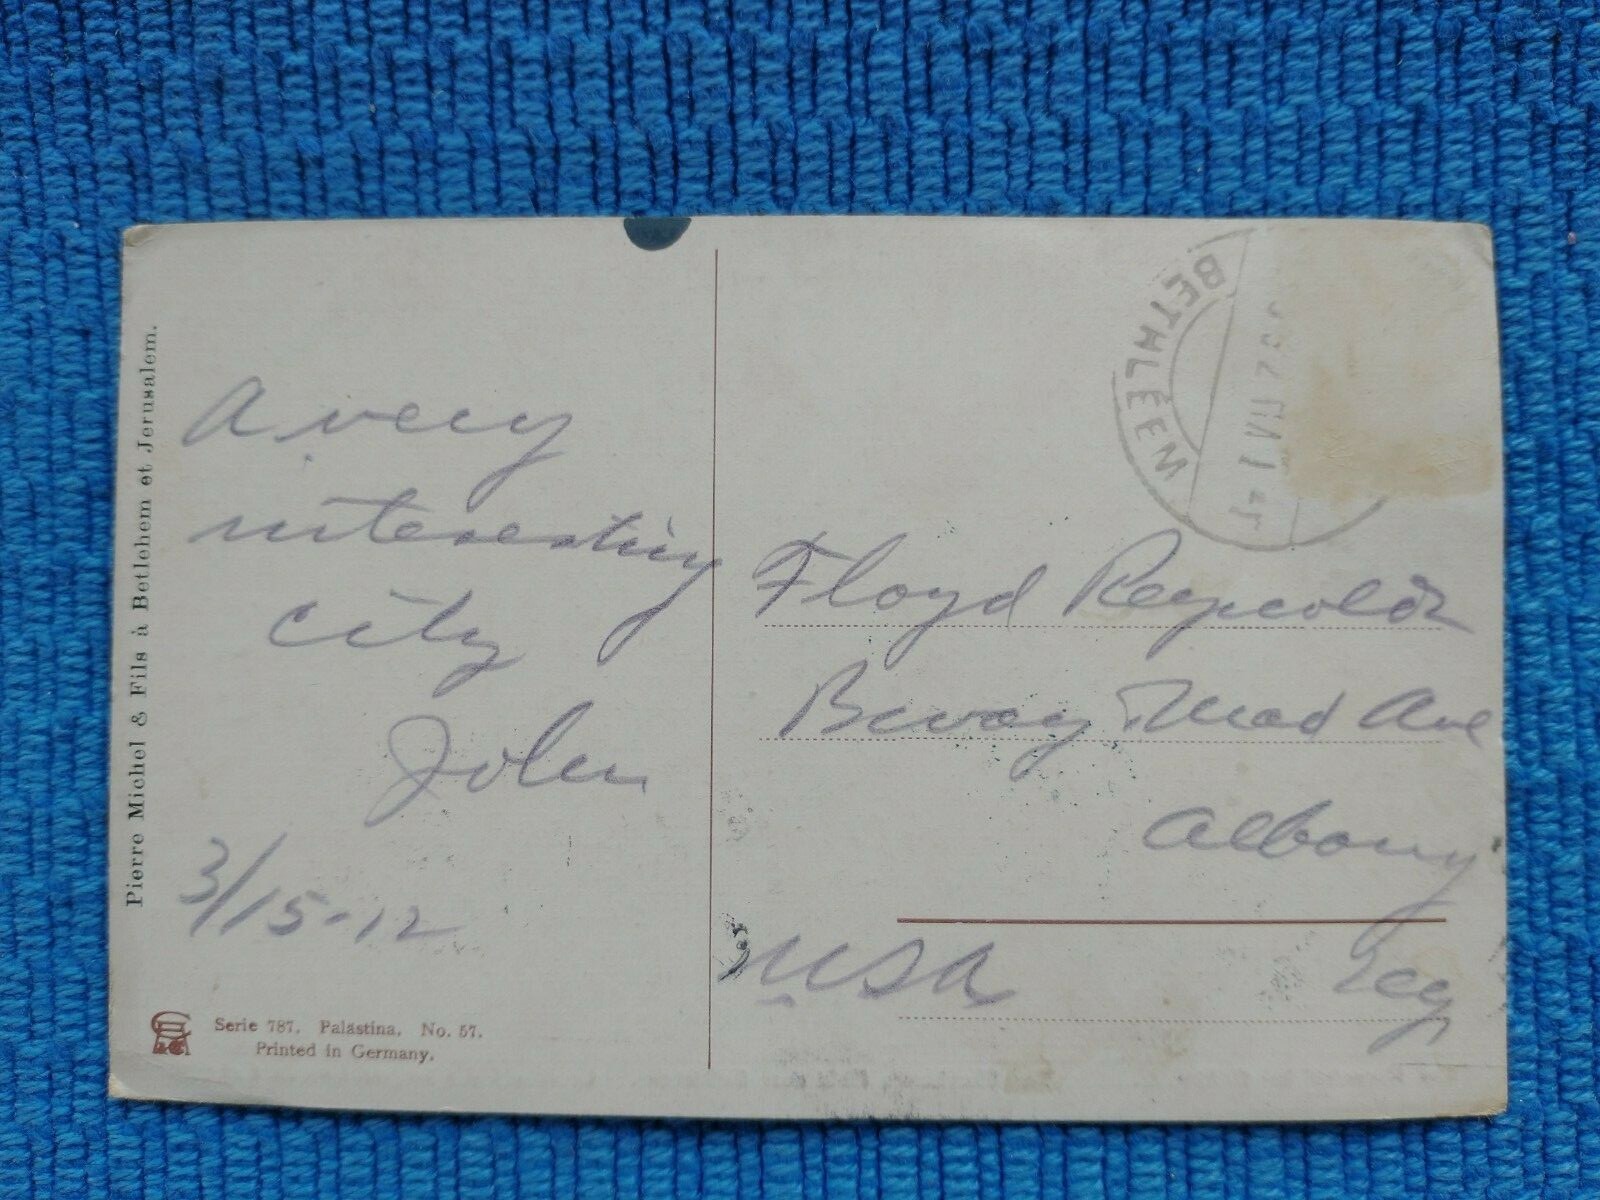 Pierre Michel & Fils à Betlehem et Jerusalem.
A very
interesting
city
John
3/15-12
Serie 787. Palästina. No. 57.
Printed in Germany.
BETHLÉEM
Floyd Reynolds
Mad Ave
Albany
USA